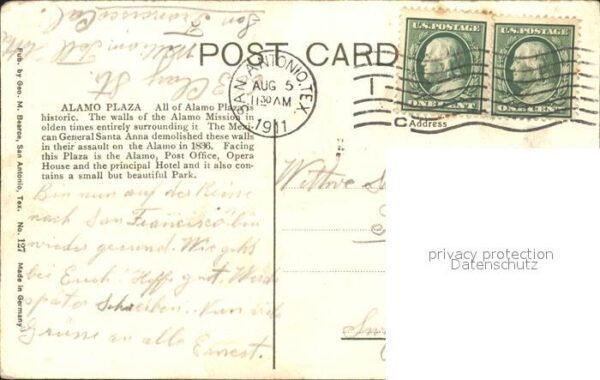 San Francisco Cal.
William
Clay St.
POST CARD
SAN ANTONIO, TEX.
AUG 5
11:30 AM
1911
U.S. POSTAGE
ONE CENT
U.S. POSTAGE
ONE CENT
Address
ALAMO PLAZA All of Alamo Plaza is
historic. The walls of the Alamo Mission in
olden times entirely surrounding it. The Mexi-
can General Santa Anna demolished these walls
in their assault on the Alamo in 1836. Facing
this Plaza is the Alamo, Post Office, Opera
House and the principal Hotel and it also con-
tains a small but beautiful Park.
Pub. by Geo. M. Bearce, San Antonio, Tex. No. 127 Made in Germany
Bin nun auf der Reise
nach San Francisco bin
wieder gesund. Wie gehts
bei Euch! Hoffe gut. Werde
später Schreiben. Nun
Grüsse an alle Ernest.
Wittwe
privacy protection
Datenschutz